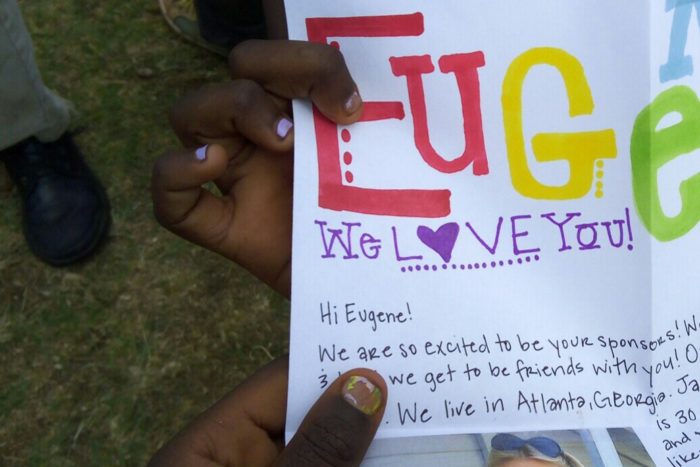 EUGe
We LOVE You!
Hi Eugene!
We are so excited to be your sponsors!
we get to be friends with you!
We live in Atlanta, Georgia. Ja
is 30
and
like